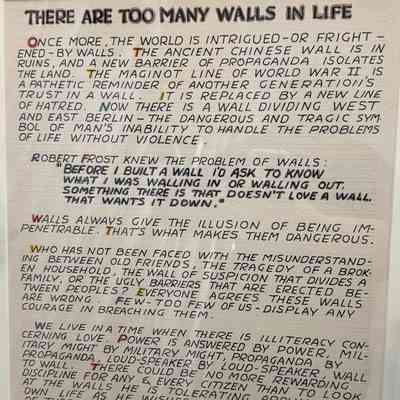 THERE ARE TOO MANY WALLS IN LIFE
ONCE MORE, THE WORLD IS INTRIGUED-OR FRIGHT-
ENED-BY WALLS. THE ANCIENT CHINESE WALL IS IN
RUINS, AND A NEW BARRIER OF PROPAGANDA ISOLATES
THE LAND. THE MAGINOT LINE OF WORLD WAR II IS
A PATHETIC REMINDER OF ANOTHER GENERATION'S
TRUST IN A WALL. IT IS REPLACED BY A NEW LINE
OF HATRED. NOW THERE IS A WALL DIVIDING WEST
AND EAST BERLIN - THE DANGEROUS AND TRAGIC SYM-
BOL OF MAN'S INABILITY TO HANDLE THE PROBLEMS
OF LIFE WITHOUT VIOLENCE.
ROBERT FROST KNEW THE PROBLEM OF WALLS:
"BEFORE I BUILT A WALL I'D ASK TO KNOW
WHAT I WAS WALLING IN OR WALLING OUT.
SOMETHING THERE IS THAT DOESN'T LOVE A WALL,
THAT WANTS IT DOWN."
WALLS ALWAYS GIVE THE ILLUSION OF BEING IM-
PENETRABLE. THAT'S WHAT MAKES THEM DANGEROUS.
WHO HAS NOT BEEN FACED WITH THE MISUNDERSTAND-
ING BETWEEN OLD FRIENDS, THE TRAGEDY OF A BROK-
EN HOUSEHOLD, THE WALL OF SUSPICION THAT DIVIDES A
FAMILY, OR THE UGLY BARRIERS THAT ARE ERECTED BE-
TWEEN PEOPLES? EVERYONE AGREES THESE WALLS
ARE WRONG. FEW-TOO FEW OF US-DISPLAY ANY
COURAGE IN BREACHING THEM.
WE LIVE IN A TIME WHEN THERE IS ILLITERACY CON-
CERNING LOVE. POWER IS ANSWERED BY POWER, MIL-
ITARY MIGHT BY MILITARY MIGHT, PROPAGANDA BY
PROPAGANDA, LOUD-SPEAKER BY LOUD-SPEAKER, WALL
TO WALL. THERE COULD BE NO MORE REWARDING
DISCIPLINE FOR ANY & EVERY CITIZEN THAN TO LOOK
AT THE WALLS HE IS TOLERATING
OWN LIFE AS HE